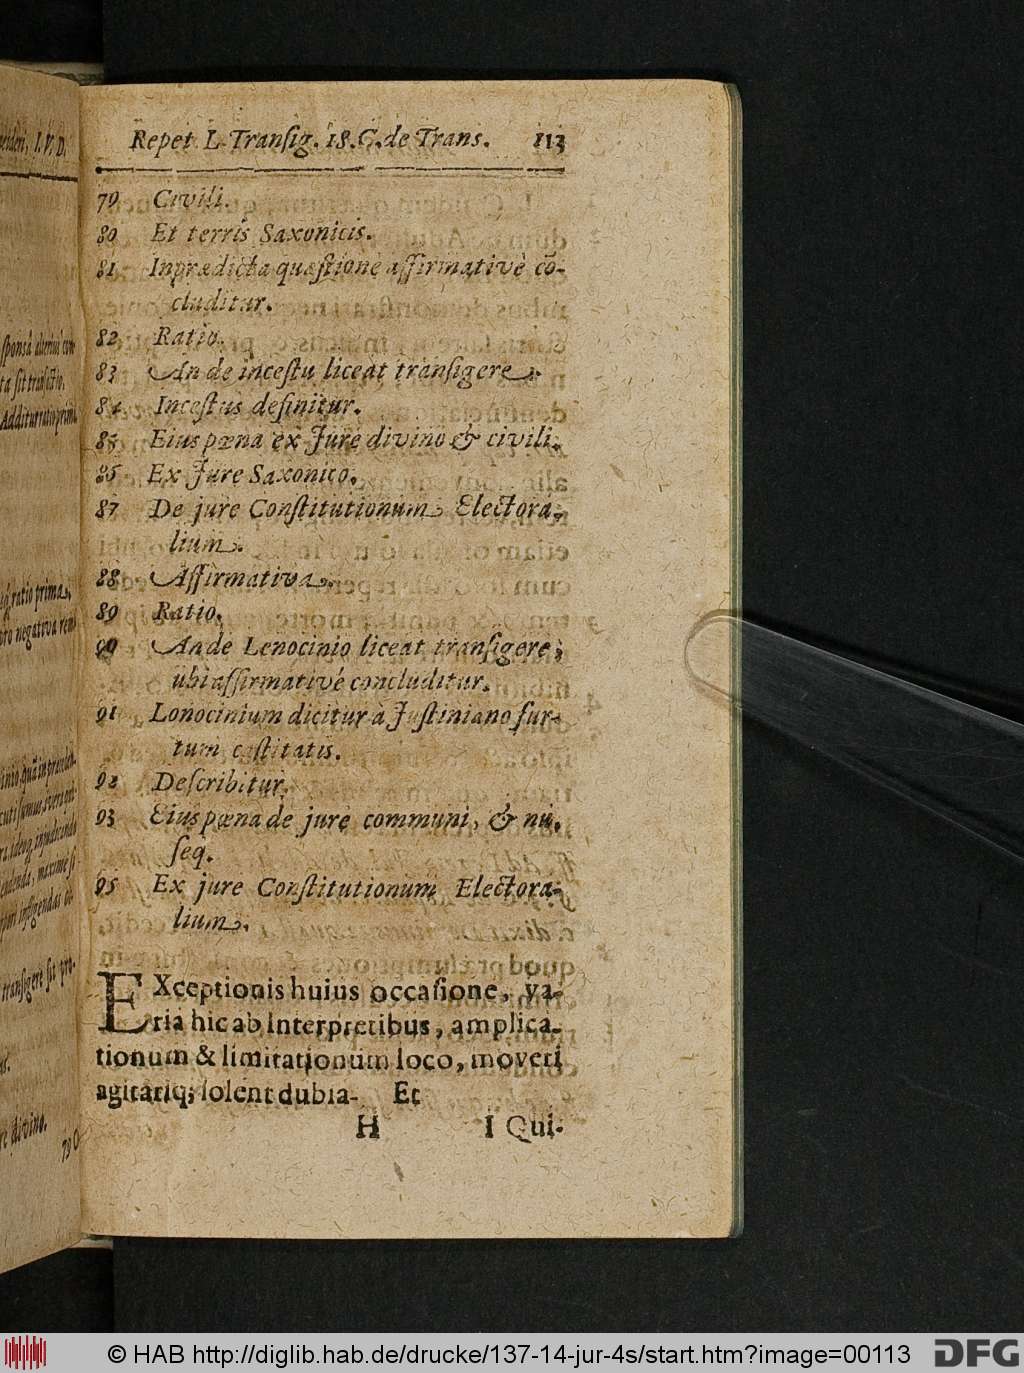 neideri, I. V. D.
sponsa alterius con-
ta sit transactio.
Additur ratio prima.
ratio prima,
pro negativa rem-
transigere sit pro-
re divino.
79 C
Repet L. Transig. 18. C. de Trans. 113
79 Civili.
80 Et terris Saxonicis.
81 Inprædicta quæstione affirmativè cō-
cluditur.
82 Ratio.
83 An de incestu liceat transigere.
84 Incestus definitur.
85 Eius pœna ex Jure divino & civili.
86 Ex Jure Saxonico.
87 De jure Constitutionum Electora-
lium.
88 Affirmativa.
89 Ratio.
90 An de Lenocinio liceat transigere,
ubi affirmativè concluditur.
91 Lonocinium dicitur à Justiniano fur-
tum castitatis.
92 Describitur.
93 Eius pœna de jure communi, & nu.
seq.
95 Ex jure Constitutionum Electora-
lium.
EXceptionis huius occasione, va-
ria hic ab Interpretibus, amplica-
tionum & limitationum loco, moveri
agitariq; solent dubia. Et
H I Qui-
© HAB http://diglib.hab.de/drucke/137-14-jur-4s/start.htm?image=00113
DFG